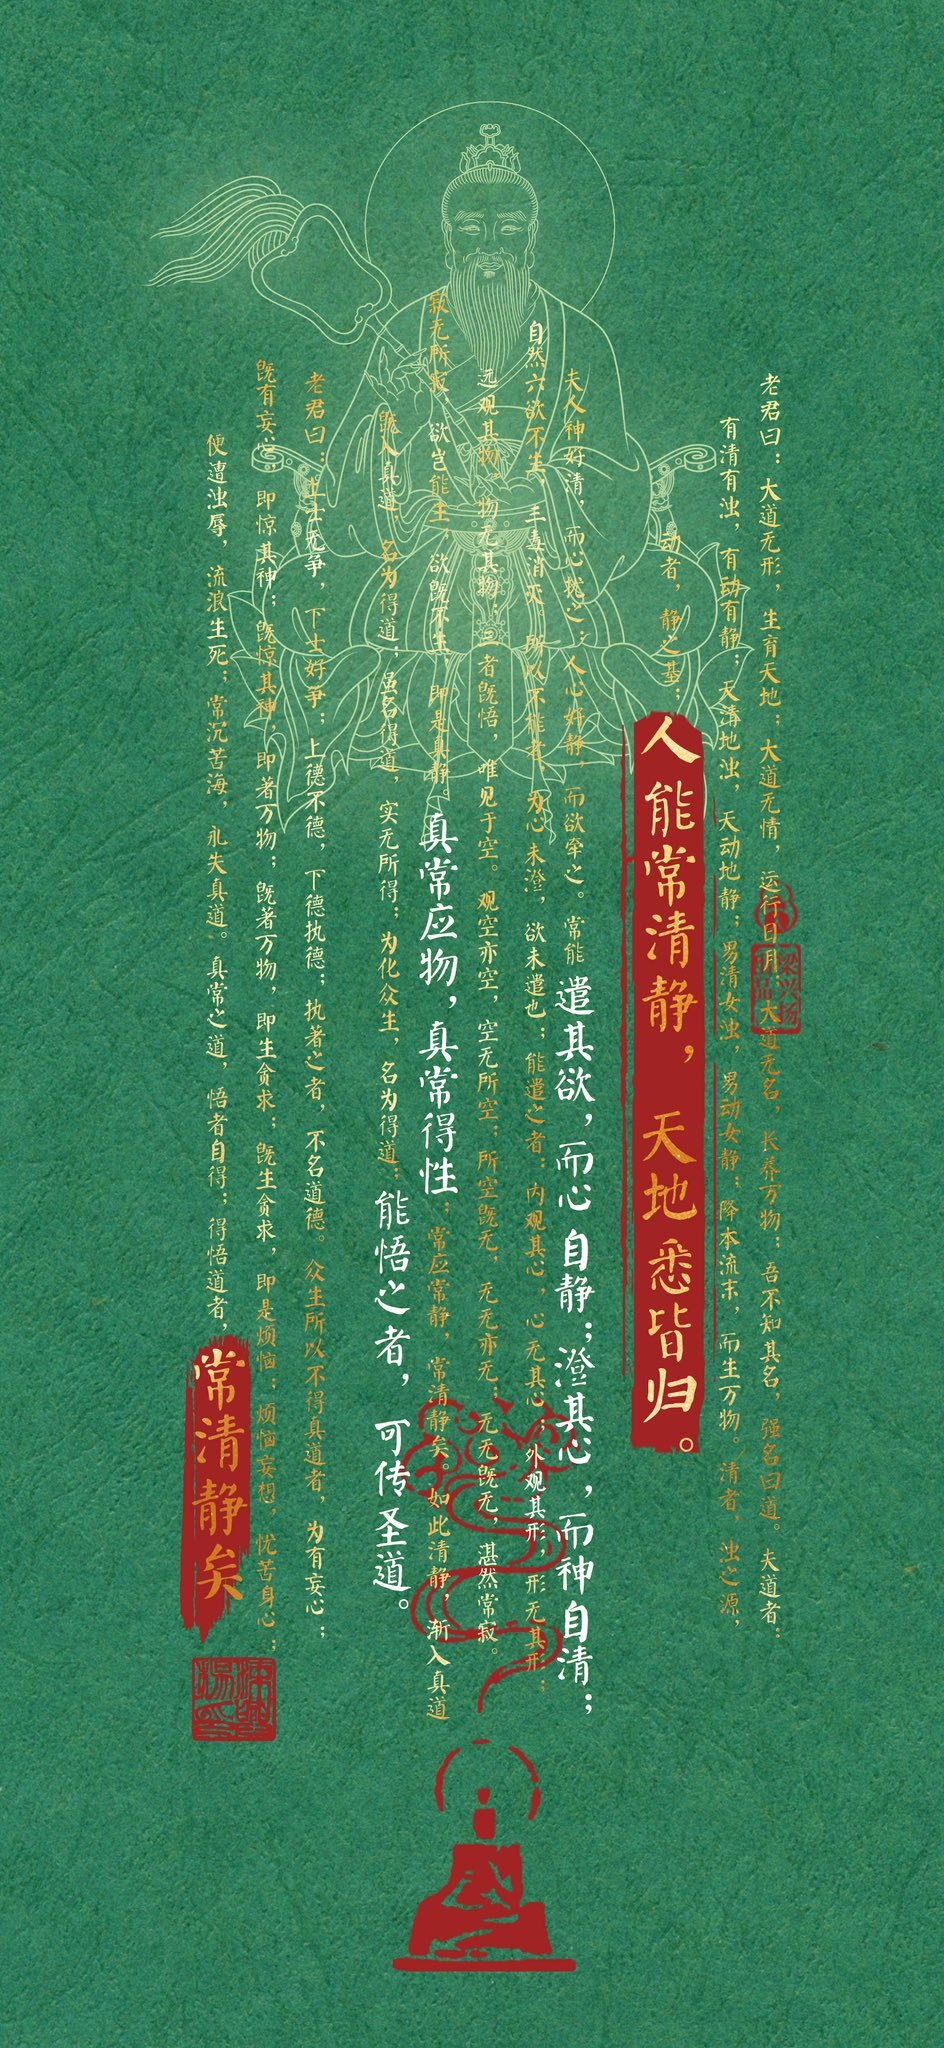 老君曰：大道无形，生育天地；大道无情，运行日月；大道无名，长养万物；吾不知其名，强名曰道。夫道者：
有清有浊，有动有静；天清地浊，天动地静；男清女浊，男动女静；降本流末，而生万物。清者，浊之源，
动者，静之基；人能常清静，天地悉皆归。
夫人神好清，而心扰之；人心好静，而欲牵之。常能遣其欲，而心自静；澄其心，而神自清；
自然六欲不生，三毒消灭。所以不能者，为心未澄，欲未遣也；能遣之者：内观其心，心无其心；外观其形，形无其形；
远观其物，物无其物；三者既悟，唯见于空。观空亦空，空无所空；所空既无，无无亦无；无无既无，湛然常寂。
寂无所寂，欲岂能生，欲既不生，即是真静。真常应物，真常得性；常应常静，常清静矣。如此清静，渐入真道
既入真道，名为得道；虽名得道，实无所得；为化众生，名为得道；能悟之者，可传圣道。
老君曰：上士无争，下士好争；上德不德，下德执德；执著之者，不名道德。众生所以不得真道者，为有妄心；
既有妄心，即惊其神；既惊其神，即著万物；既著万物，即生贪求；既生贪求，即是烦恼；烦恼妄想。忧苦身心；
便遭浊辱，流浪生死；常沉苦海，永失真道。真常之道，悟者自得；得悟道者，常清静矣
梁兴扬